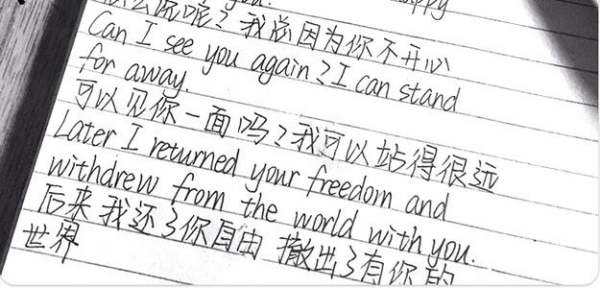 么说呢？我总因为你不开心
Can I see you again？I can stand
for away.
可以见你一面吗？我可以站得很远
Later I returned your freedom and
withdrew from the world with you.
后来我还了你自由 撤出了有你的
世界